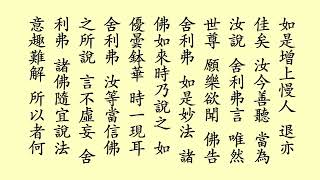 如是增上慢人　退亦
佳矣　汝今善聽　當為
汝說　舍利弗言　唯然
世尊　願樂欲聞　佛告
舍利弗　如是妙法　諸
佛如來時乃說之　如
優曇鉢華　時一現耳
舍利弗　汝等當信佛
之所說　言不虛妄　舍
利弗　諸佛隨宜說法
意趣難解　所以者何